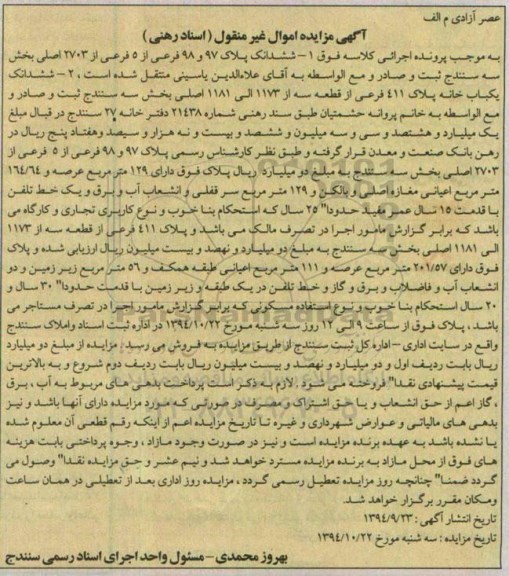 عصر آزادی م الف
آگهی مزایده اموال غیر منقول ( اسناد رهنی )
به موجب پرونده اجرائی کلاسه فوق ۱ - ششدانگ پلاک ۹۷ و ۹۸ فرعی از ۵ فرعی از ۲۷۰۳ اصلی بخش
سه سنندج ثبت و صادر و مع الواسطه به آقای علاءالدین یاسینی منتقل شده است ، ۲ - ششدانگ
یکباب خانه پلاک ۴۱۱ فرعی از قطعه سه از ۱۱۷۳ الی ۱۱۸۱ اصلی بخش سه سنندج ثبت و صادر و
مع الواسطه به خانم پروانه حشمتیان طبق سند رهنی شماره ۲۱۴۳۸ دفتر خانه ۲۷ سنندج در قبال مبلغ
یک میلیارد و هشتصد و سی و سه میلیون و ششصد و بیست و نه هزار و سیصد وهفتاد پنج ریال در
رهن بانک صنعت و معدن قرار گرفته و طبق نظر کارشناس رسمی پلاک ۹۷ و ۹۸ فرعی از ۵ فرعی از
۲۷۰۳ اصلی بخش سه سنندج به مبلغ دو میلیارد ریال پلاک فوق دارای ۱۲۹ متر مربع عرصه و ۱۶۴/۶۴
متر مربع اعیانی مغازه اصلی و بالکن و ۱۲۹ متر مربع سر قفلی و انشعاب آب و برق و یک خط تلفن
با قدمت ۱۵ سال عمر مفید حدودا" ۲۵ سال که استحکام بنا خوب و نوع کاربری تجاری و کارگاه می
باشد که برابر گزارش مامور اجرا در تصرف مالک می باشد و پلاک ۴۱۱ فرعی از قطعه سه از ۱۱۷۳
الی ۱۱۸۱ اصلی بخش سه سنندج به مبلغ دو میلیارد و نهصد و بیست میلیون ریال ارزیابی شده و پلاک
فوق دارای ۲۰۱/۵۷ متر مربع عرصه و ۱۱۱ متر مربع اعیانی طبقه همکف و ۵۶ متر مربع زیر زمین و دو
انشعاب آب و فاضلاب و برق و گاز و خط تلفن در یک طبقه و زیر زمین با قدمت حدود" ۳۰ سال و
۲۰ سال استحکام بنا خوب و نوع استفاده مسکونی که برابر گزارش مامور اجرا در تصرف مستاجر می
باشد ، پلاک فوق از ساعت ۹ الی ۱۲ روز سه شنبه مورخ ۱۳۹۴/۱۰/۲۲ در اداره ثبت اسناد واملاک سنندج
واقع در سایت اداری - اداره کل ثبت سنندج از طریق مزایده به فروش می رسد . مزایده از مبلغ دو میلیارد
ریال بابت ردیف اول و دو میلیارد و نهصد و بیست میلیون ریال بابت ردیف دوم شروع و به بالاترین
قیمت پیشنهادی نقدا" فروخته می شود . لازم به ذکر است پرداخت بدهی های مربوط به آب ، برق
، گاز اعم از حق انشعاب و یا حق اشتراک و مصرف در صورتی که مورد مزایده دارای آنها باشد و نیز
بدهی های مالیاتی و عوارض شهرداری و غیره تا تاریخ مزایده اعم از اینکه رقم قطعی آن معلوم شده
یا نشده باشد به عهده برنده مزایده است و نیز در صورت وجود مازاد ، وجوه پرداختی بابت هزینه
های فوق از محل مازاد به برنده مزایده مسترد خواهد شد و نیم عشر و حق مزایده نقدا" وصول می
گردد ضمنا" چنانچه روز مزایده تعطیل رسمی گردد ، مزایده روز اداری بعد از تعطیلی در همان ساعت
ومکان مقرر برگزار خواهد شد.
تاریخ انتشار آگهی : ۱۳۹۴/۹/۲۳
تاریخ مزایده : سه شنبه مورخ ۱۳۹۴/۱۰/۲۲
بهروز محمدی - مسئول واحد اجرای اسناد رسمی سنندج